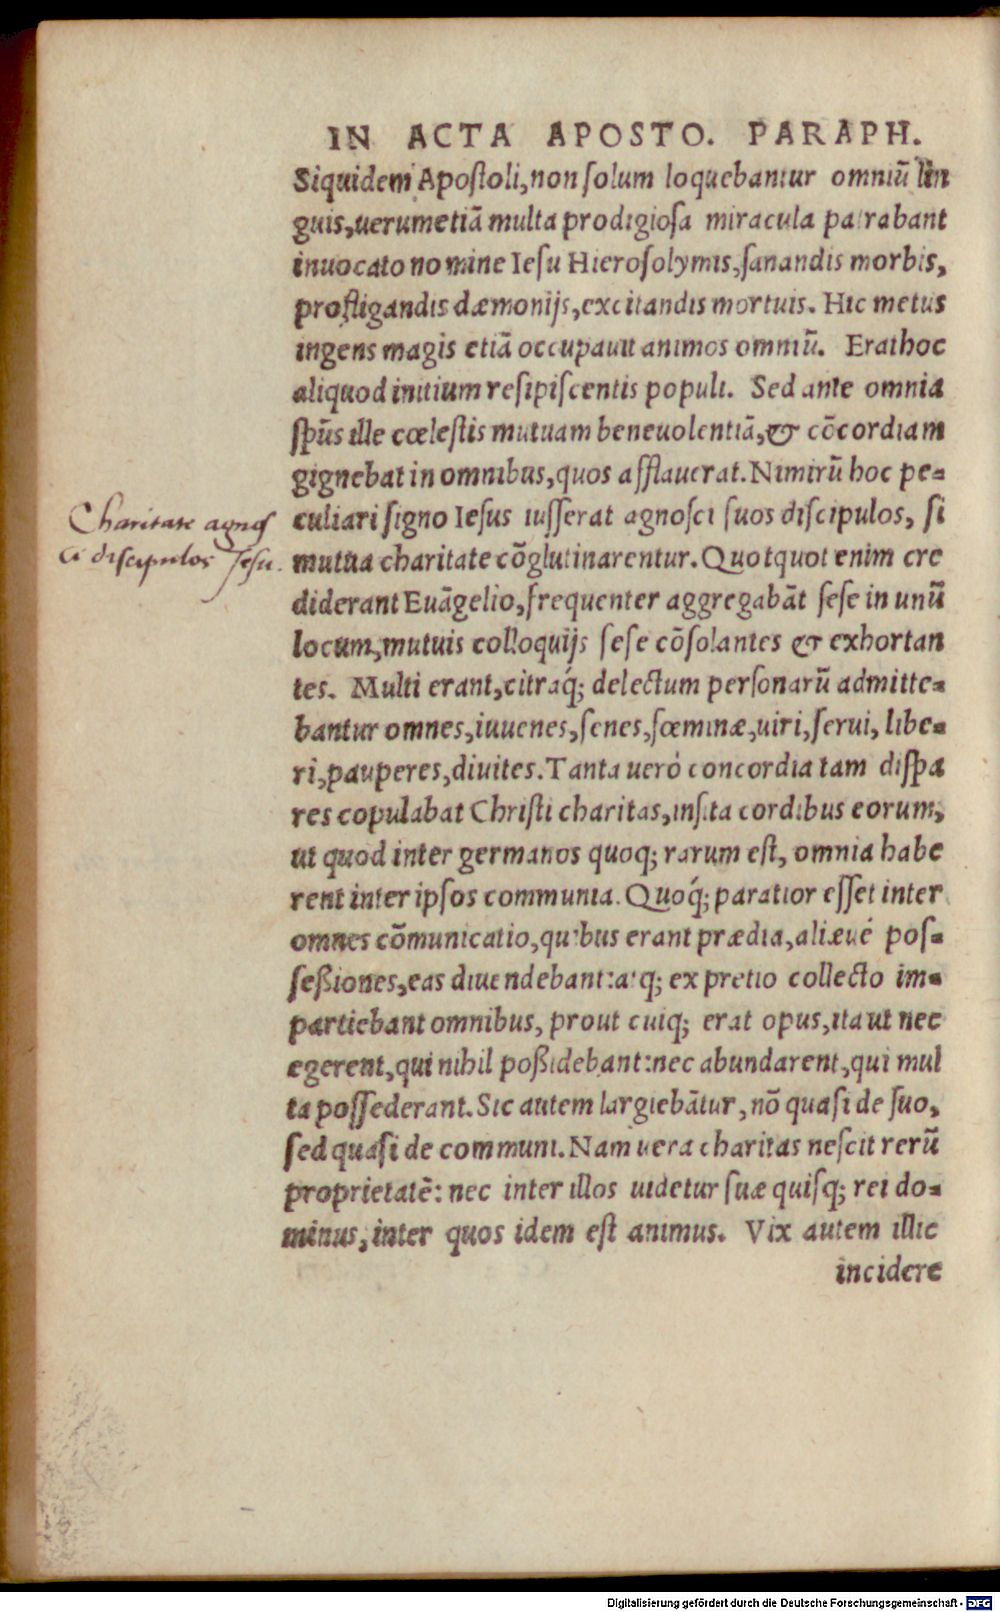 IN ACTA APOSTO. PARAPH.
Siquidem Apostoli, non solum loquebantur omniū lin
guis, uerumetiā multa prodigiosa miracula patrabant
inuocato nomine Iesu Hierosolymis, sanandis morbis,
profligandis dæmonijs, excitandis mortuis. Hic metus
ingens magis etiā occupauit animos omniū. Erat hoc
aliquod initium resipiscentis populi. Sed ante omnia
spūs ille cœlestis mutuam beneuolentiā, & cōcordiam
gignebat in omnibus, quos afflauerat. Nimirū hoc pe-
culiari signo Iesus iusserat agnosci suos discipulos, si
mutua charitate cōglutinarentur. Quotquot enim cre
diderant Euāgelio, frequenter aggregabāt sese in unū
locum, mutuis colloquijs sese cōsolantes & exhortan
tes. Multi erant, citraq́; delectum personarū admitte-
bantur omnes, iuuenes, senes, fœminæ, uiri, serui, libe-
ri, pauperes, diuites. Tanta ueró concordia tam dispa
res copulabat Christi charitas, insita cordibus eorum,
ut quod inter germanos quoq; rarum est, omnia habe
rent inter ipsos communia. Quoq́; paratior esset inter
omnes cōmunicatio, quibus erant prædia, aliæué pos-
seßiones, eas diuendebant: atq; ex pretio collecto im-
partiebant omnibus, prout cuiq; erat opus, ita ut nec
egerent, qui nihil poßidebant: nec abundarent, qui mul
ta possederant. Sic autem largiebātur, nō quasi de suo,
sed quasi de communi. Nam uera charitas nescit rerū
proprietatē: nec inter illos uidetur suæ quisq; rei do-
minus, inter quos idem est animus. Vix autem illic
incidere
Charitate agnos
ci discipulos Jesu.
Digitalisierung gefördert durch die Deutsche Forschungsgemeinschaft - DFG